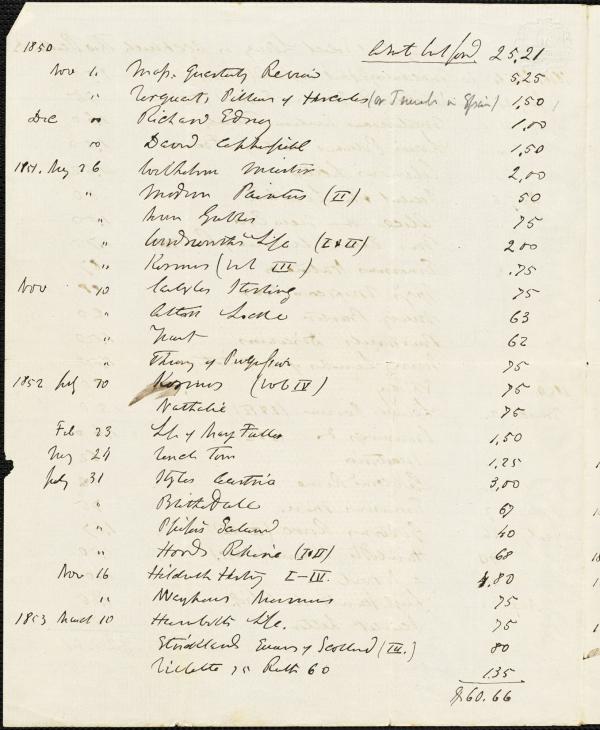 1850 Amt bt. ford 25.21
Nov 1. Mass. Quarterly Review 5,25
" Torquato, Pillars of Hercules (or Travels in Spain) 1,50
Dec " Richard Edney 1,00
" David Copperfield 1,50
1851. Aug 26 Wilhelm Meister 2,00
" Modern Painters (II) 50
" 75
" Wordsworth's Life (I & II) 200
" Kosmos (vol III) .75
Nov 10 Carlyles Sterling 75
" Alton Locke 63
" Yeast 62
" Theory of 75
1852 July 20 Kosmos (vol IV) 75
Nathalie 75
Feb 23 Life of Marg Fuller 1,50
Aug 24 Uncle Tom 1,25
July 31 Styles Austria 3,00
" Blithedale 67
" 40
" Hoods Rhine (I & II) 68
Nov 16 Hildreth History I–IV. 4.80
" Mayhews Mormons 75
1853 March 10 Humbolts Life. 75
Stricklands Queens of Scotland (III.) 80
Villette 75 Ruth 60 1.35
$60.66